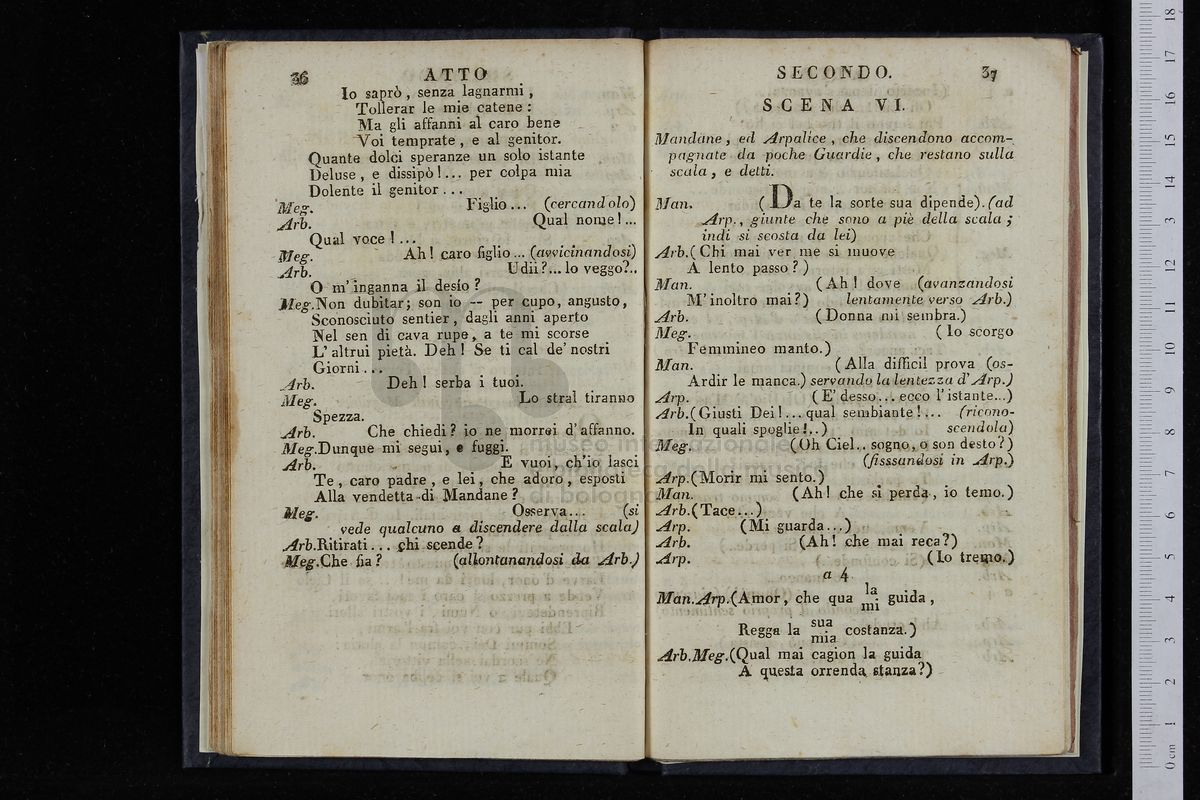 36 ATTO
Io saprò, senza lagnarmi,
Tollerar le mie catene:
Ma gli affanni al caro bene
Voi temprate, e al genitor.
Quante dolci speranze un solo istante
Deluse, e dissipò!... per colpa mia
Dolente il genitor...
Meg. Figlio... (cercandolo)
Arb. Qual nome!...
Qual voce!...
Meg. Ah! caro figlio... (avvicinandosi)
Arb. Udii?... lo veggo?..
O m'inganna il desío?
Meg. Non dubitar; son io -- per cupo, angusto,
Sconosciuto sentier, dagli anni aperto
Nel sen di cava rupe, a te mi scorse
L'altrui pietà. Deh! Se ti cal de'nostri
Giorni...
Arb. Deh! serba i tuoi.
Meg. Lo stral tiranno
Spezza.
Arb. Che chiedi? io ne morrei d'affanno.
Meg. Dunque mi segui, e fuggi.
Arb. E vuoi, ch'io lasci
Te, caro padre, e lei, che adoro, esposti
Alla vendetta di Mandane?
Meg. Osserva... (si
vede qualcuno a discendere dalla scala)
Arb. Ritirati... chi scende?
Meg. Che fia? (allontanandosi da Arb.)
SECONDO. 37
SCENA VI.
Mandane, ed Arpalice, che discendono accom-
pagnate da poche Guardie, che restano sulla
scala, e detti.
Man. (Da te la sorte sua dipende). (ad
Arp., giunte che sono a piè della scala;
indi si scosta da lei)
Arb. (Chi mai ver me si muove
A lento passo?)
Man. (Ah! dove (avanzandosi
M'inoltro mai?) lentamente verso Arb.)
Arb. (Donna mi sembra.)
Meg. (Io scorgo
Femmineo manto.)
Man. (Alla difficil prova (os-
Ardir le manca.) servando la lentezza d'Arp.)
Arp. (E' desso... ecco l'istante...)
Arb. (Giusti Dei!... qual sembiante!... (ricono-
In quali spoglie!..) scendola)
Meg. (Oh Ciel.. sogno, o son desto?)
(fisssandosi in Arp.)
Arp. (Morir mi sento.)
Man. (Ah! che si perda, io temo.)
Arb. (Tace...)
Arp. (Mi guarda...)
Arb. (Ah! che mai reca?)
Arp. (Io tremo.)
a 4.
Man. Arp. (Amor, che qua la mi guida,
Regga la sua mia costanza.)
Arb. Meg. (Qual mai cagion la guida
A questa orrenda stanza?)
museo internazionale
biblioteca della musica
di bologna